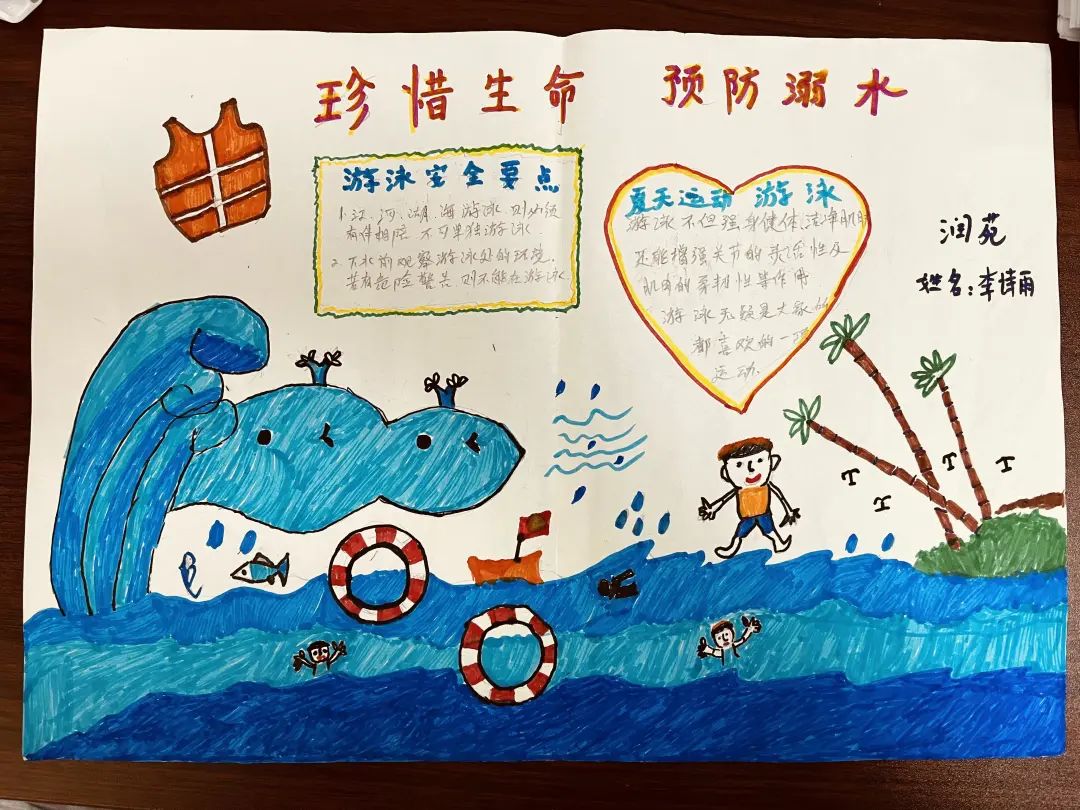 珍惜生命 预防溺水
游泳安全要点
1.江、河、湖、海游泳,则必须
有伴相陪 不可单独游泳.
2.下水前观察游泳处的环境
若有危险警告,则不能在游泳
夏天运动 游泳
游泳不但强身健体,洁净肌肤
还能增强关节的灵活性及
肌肉的柔韧性等作用
游泳无疑是大家的
都喜欢的一项
运动.
润苑
姓名:李诗雨